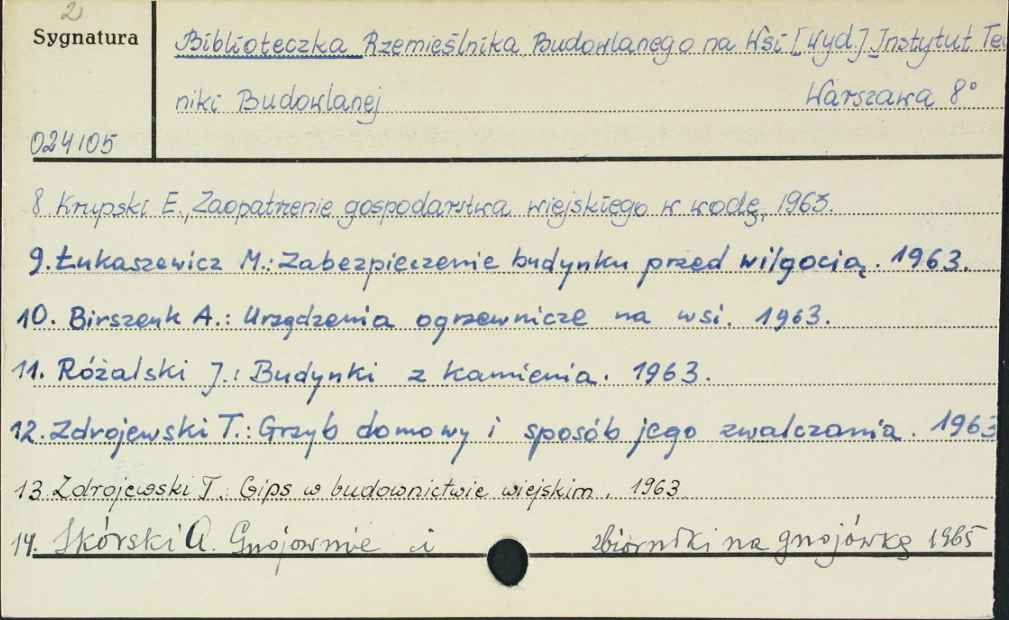 2
Sygnatura
Biblioteczka Rzemieślnika Budowlanego na Wsi [Wyd.] Instytut Te
niki Budowlanej Warszawa 8°
024105
8 Krupski E., Zaopatrzenie gospodarstwa wiejskiego w wodę, 1963.
9. Łukaszewicz M.: Zabezpieczenie budynku przed wilgocią. 1963.
10. Birszenk A.: Urządzenia ogrzewnicze na wsi. 1963.
11. Różalski J.: Budynki z kamienia. 1963.
12. Zdrojewski T.: Grzyb domowy i sposób jego zwalczania. 1963
13 Zdrojewski T.: Gips w budownictwie wiejskim. 1963
14. Skórski A. Gnojownie i zbiorniki na gnojówkę 1965